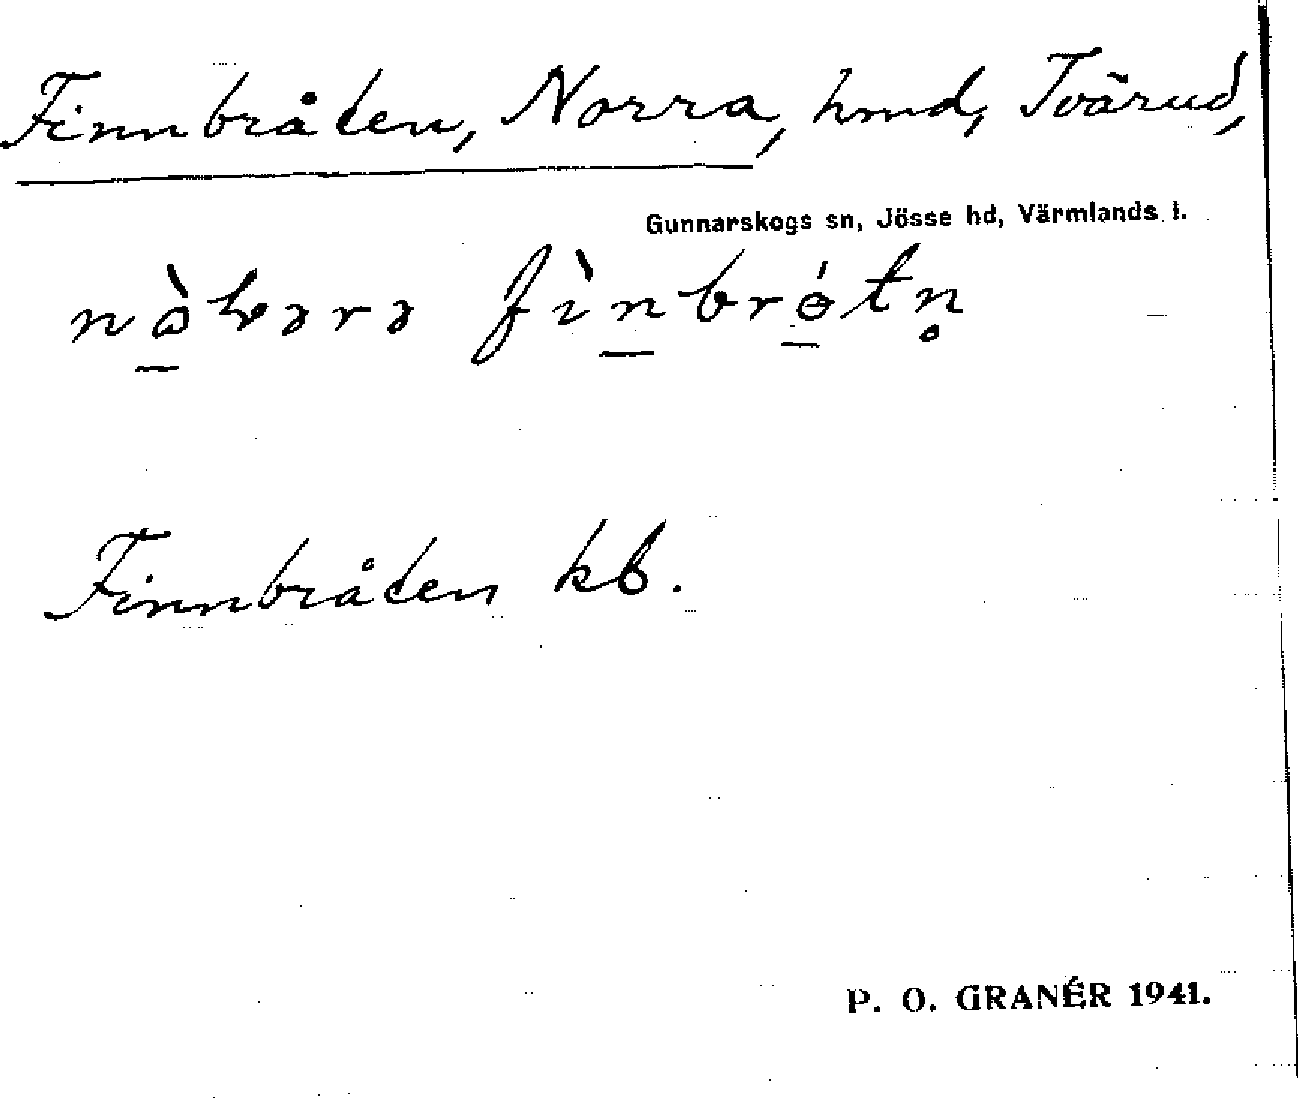 Finnbråten, Norra, hmd, Tvärud,
Gunnarskogs sn, Jösse hd, Värmlands l.
fìnbrɵ́tn̥
Finnbråten kb.
P. O. GRANÉR 1941.